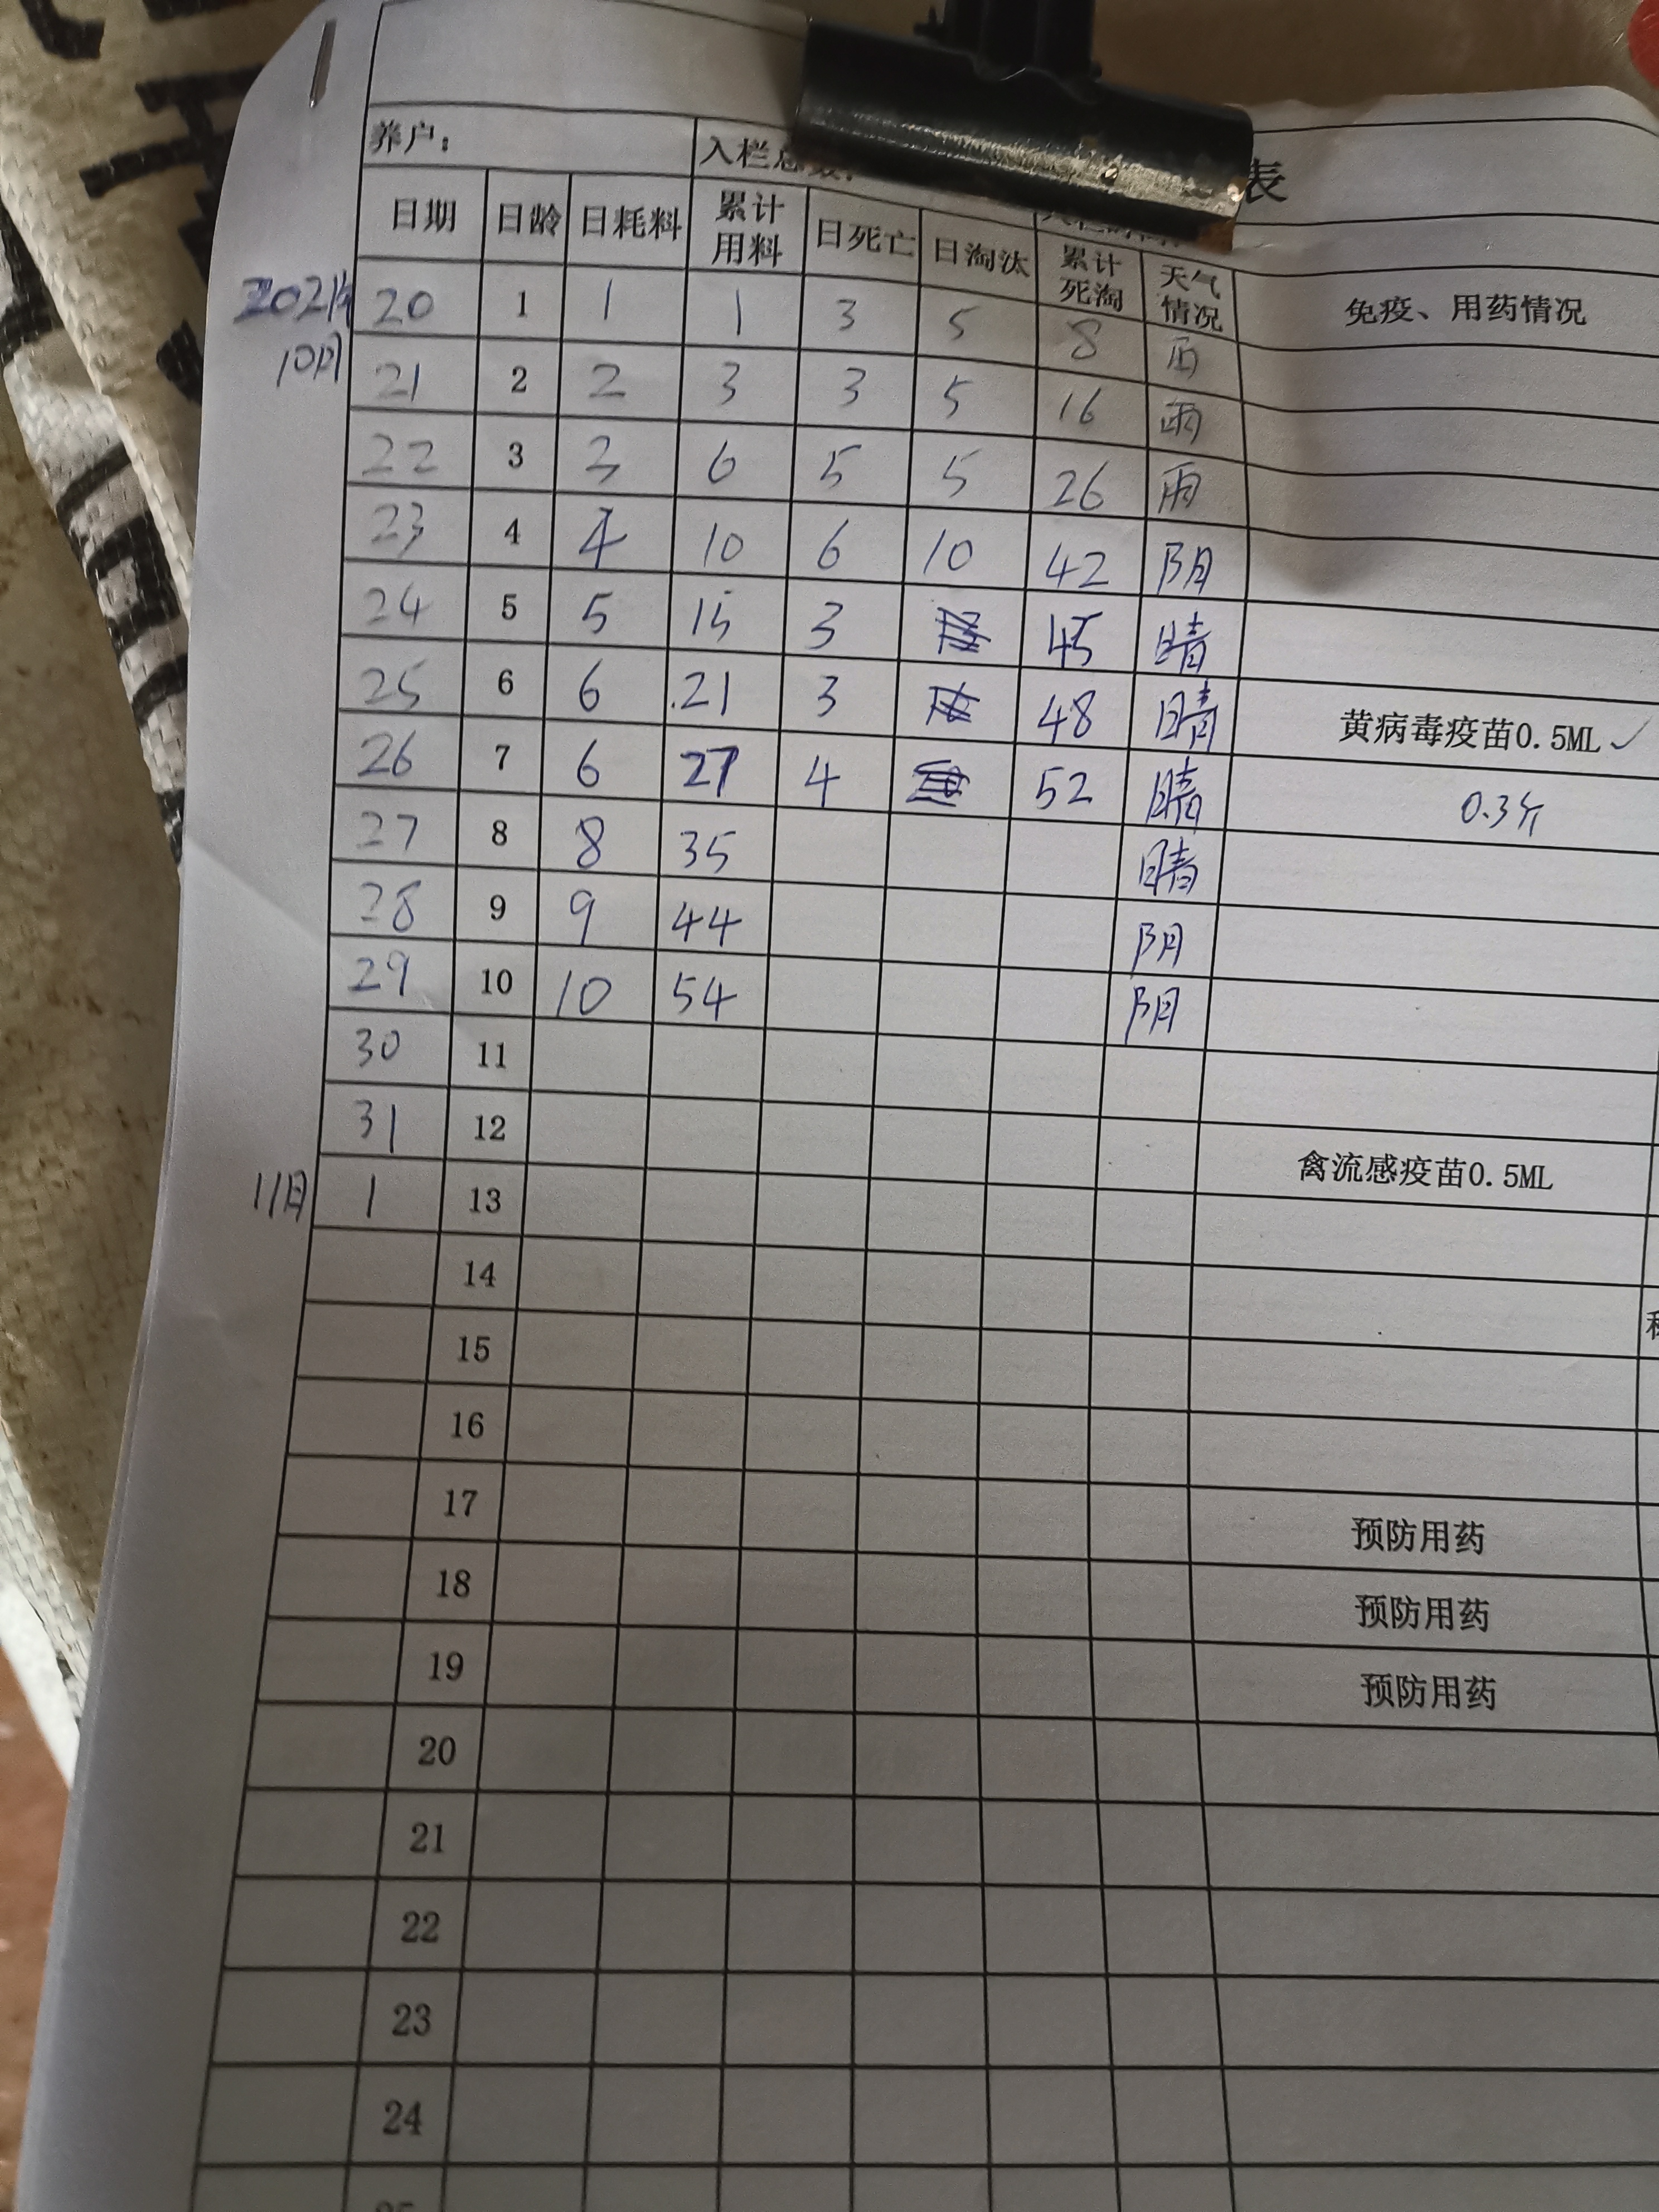 表
养户： 入栏总数:
日期 日龄 日耗料 累计用料 日死亡 日淘汰 累计死淘 天气情况 免疫、用药情况
2021年 20 1 1 1 3 5 8 雨
10月 21 2 2 3 3 5 16 雨
22 3 3 6 5 5 26 雨
23 4 4 10 6 10 42 阴
24 5 5 15 3 45 晴
25 6 6 21 3 48 晴 黄病毒疫苗0.5ML ✓
26 7 6 27 4 52 晴 0.3斤
27 8 8 35 晴
28 9 9 44 阴
29 10 10 54 阴
30 11
31 12 禽流感疫苗0.5ML
11月 1 13
14
15
16
17 预防用药
18 预防用药
19 预防用药
20
21
22
23
24
25